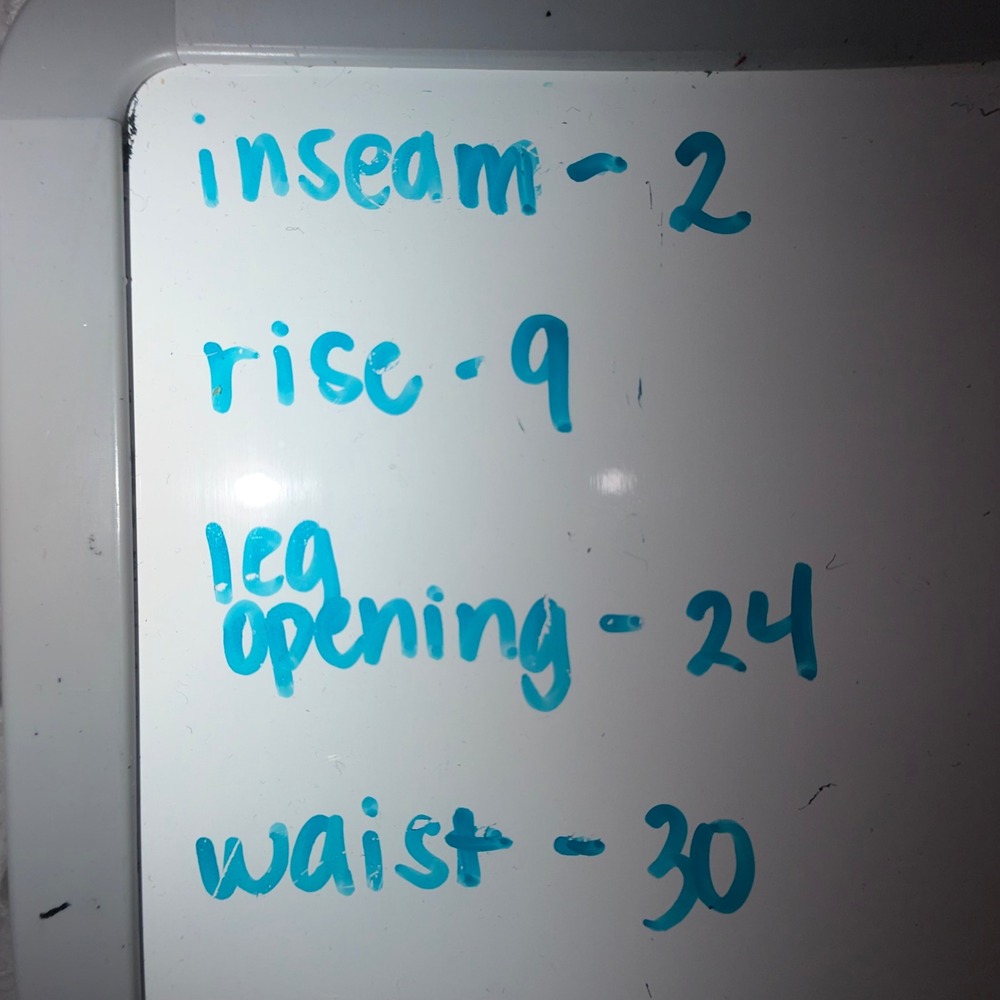 inseam - 2
rise - 9
leg
opening - 24
waist - 30